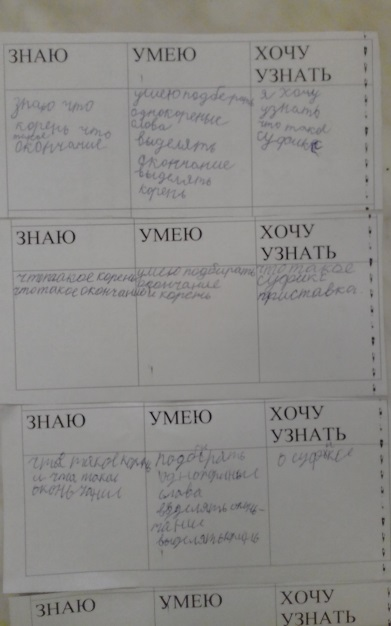 ЗНАЮ УМЕЮ ХОЧУ УЗНАТЬ
знаю что
корень что
такое
окончание
умею подберать
однокореные
слова
выделять
окончание
выделять
корень
я хочу
узнать
что такое
суфикс
ЗНАЮ УМЕЮ ХОЧУ УЗНАТЬ
что такое корень
что такое окончание
умею подбирать
окончание
и корень
что такое
суфикс
приставка
ЗНАЮ УМЕЮ ХОЧУ УЗНАТЬ
что такое
и что такое
подберать
слова
выделять
о суфиксе
ЗНАЮ УМЕЮ ХОЧУ УЗНАТЬ